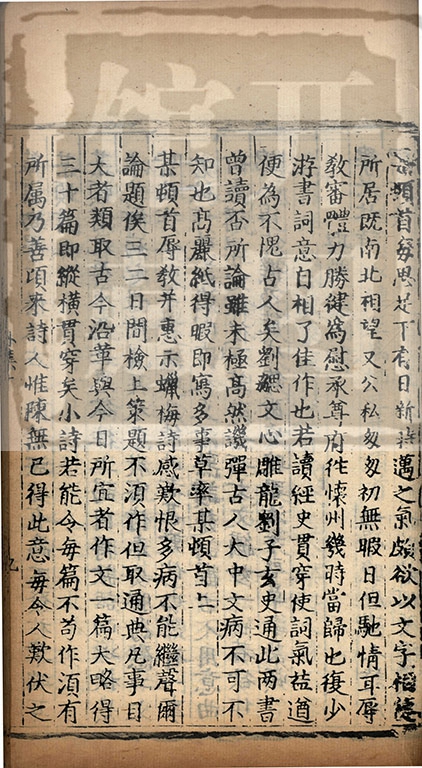 頓首每思足下有日新特邁之氣頗欲以文字相従
所居既南北相望又公私匆匆初無暇日但馳情耳辱
教審體力勝健為慰承尊府在懷州幾時當歸也復少
游書詞意白相了佳作也若讀經史貫穿使詞氣益遒
便為不愧古人矣劉勰文心雕龍劉子玄史通此兩書
曾讀否所論雖未極高然譏彈古人大中文病不可不
知也高麗紙得暇即寫多事草率某頓首上
某頓首辱教并惠示蠟梅詩感歎恨多病不能繼聲爾
論題俟三二日間檢上策題不湏作但取通典凡事目
大者類取古今沿革與今日所宜者作文一篇大略得
三十篇即縱橫貫穿矣小詩若能令每篇不苟作湏有
所属乃善頃來詩人惟陳無已得此意每令人歎伏之
九